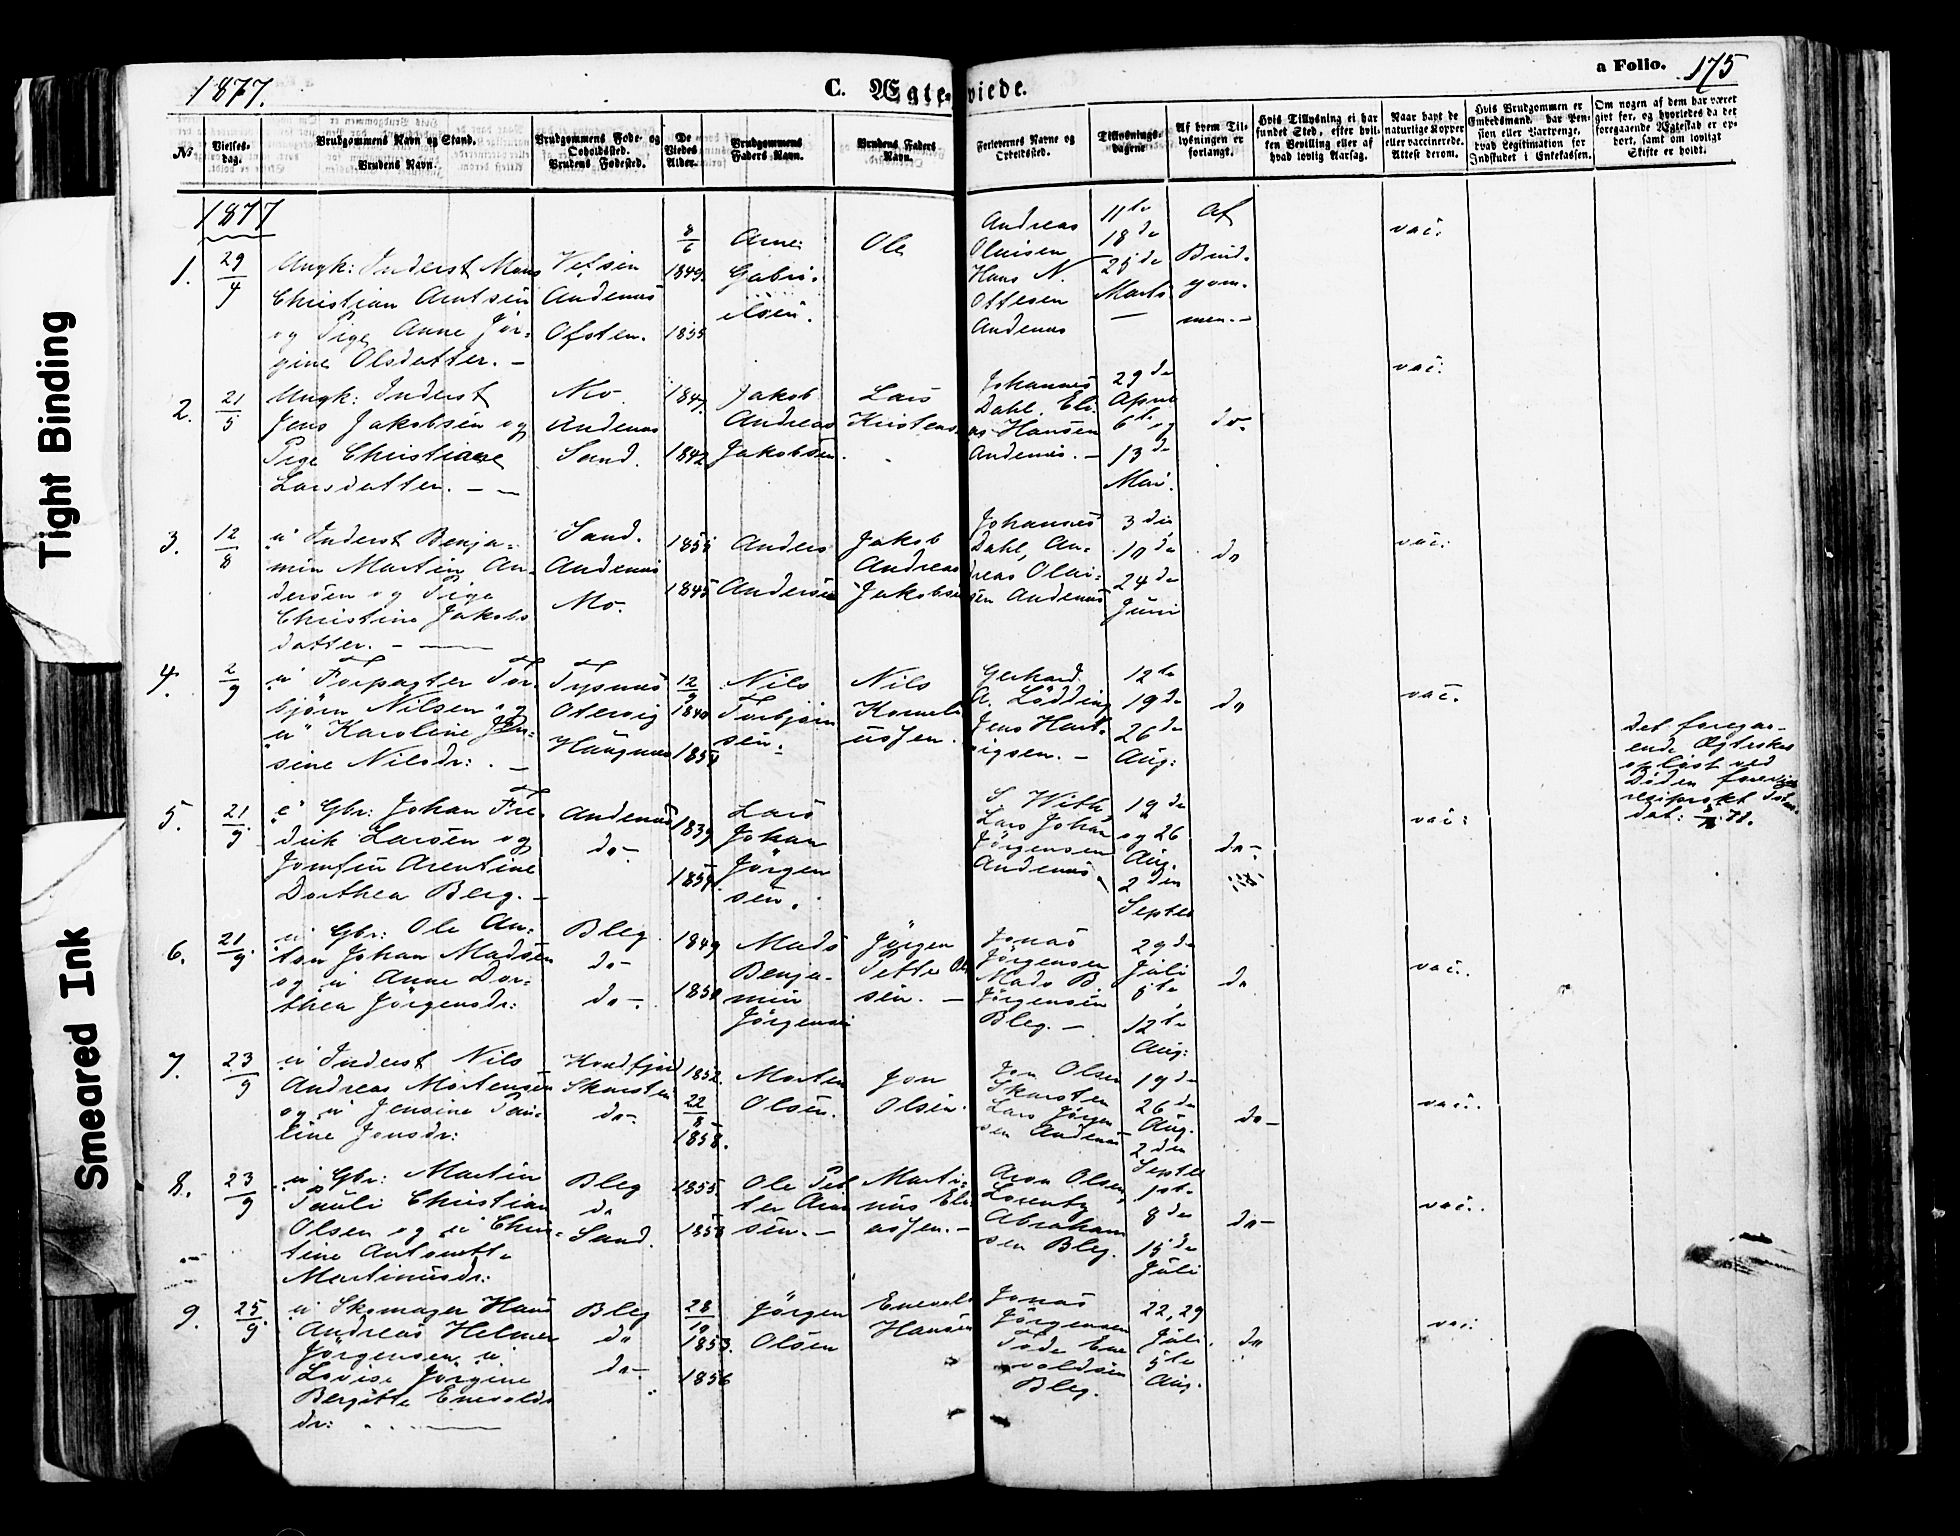 Tight Binding
Smeared Ink
1877.
C. Ægteviede.
a Folio. 175
No.
Vielses-
dag.
Brudgommens Navn og Stand.
Brudens Navn.
Brudgommens Føde- og
Opholdssted.
Brudens Fødested.
De
Viedes
Alder.
Brudgommens
Faders Navn.
Brudens Faders
Navn.
Forlovernes Navne og
Opholdssted.
Tillysnings-
dagene
Af hvem Til-
lysningen er
forlangt.
Hvis Tillysning ei har
fundet Sted, efter hvil-
ken Bevilling eller af
hvad lovlig Aarsag.
Naar havt de
naturlige Kopper
eller vaccinerede.
Attest derom.
Hvis Brudgommen er
Embedsmand, har Pen-
sion eller Vartpenge,
hvad Legitimation for
Indskudet i Enkekassen.
Om nogen af dem har været
gift før, og hvorledes da det
foregaaende Ægteskab er op-
hørt, samt om lovligt
Skifte er holdt.
1877
1.
29/4
Ungk: Inderst Mons
Christian Arntsen
og Pige Anne Jør-
gine Olsdatter. -
Vefsen
Andenæs
Ofoten.
8/6
1849.
1855
Arne
Gabri-
elsen.
Ole
Andreas
Olaisen
Hans N.
Ottesen
Andenæs
11te
18de
25de
Marts
Af
Brud-
gom-
men. -
vac.
2.
21/5
Ungk: Inderst
Jens Jakobsen og
Pige Christiane
Larsdatter. - -
Mo.
Andenæs
Sand.
1847.
1842
Jakob
Andreas
Jakobsen
Lars
Kristens.
Johannes
Dahl, Eli-
as Hansen
Andenæs. -
29de
April
6te og
13de
Mai.
do.
vac.
3.
12/8
u Inderst Benja-
min Martin An-
dersen og Pige
Christine Jakobs
datter. -
Sand.
Andenæs
Mo.
1845
Anders
Andersen
Jakob
Andreas
Jakobsen
Johannes
Dahl, An-
dreas Olai-
sen Andenæs
3die
10de
24de
Juni
do
vac:
4.
2/9
u Forpagter Tor-
bjørn Nilsen og
u Karoline Jen-
sine Nilsdr: . -
Tysnæs
Otervig
Haugnæs
12/9
1840
Nils
Torbjørn
sen.
Nils
Korneli
ussen.
Gerhard
A. Lødding
Jens Hart-
vigsen. -
12te
19de
26de
Aug:
do
vac.
5.
21/9
e Gbr: Johan Fre-
drik Larsen og
Jomfru Arentine
Dorthea Berg. -
Andenæs
do-
1839
Lars
Johan
Jørgen
sen.
S. With
Lars Johan
Jørgensen
Andenæs
19de
og 26
Aug.
2den
Septbr
do-
vac:
Det foregaa-
ende Ægteskab
opløst ved
Døden
6.
21/9
u Gbr: Ole An-
ton Johan Madsen
og u Anne Dor-
thea Jørgensdr:
Bleg
do-
do-.
1849
Mads
Benja-
min
Jørgensen
Jørgen
Jonas
Jørgensen
Mads B.
Jørgensen
Bleg. -
29de
Juli
5te
12te
Aug:
do
vac.
7.
23/9
u Inderst Nils
Andreas Mortensen
og u Jensine Pau-
line Jonsdr:
Skarsten
do-.
1852.
22/8
1858.
Morten
Olsen.
Jon
Olsen.
Jon Olsen
Skarsten
Lars Jørgen
sen Andenæs
19de
26de
Aug.
2den
Septbr
do-
vac.
8.
23/9
u Gbr: Martin
Pauli Christian
Olsen og u Chris-
tine Antonette
Martinusdr:
Bleg
do
Sand.
1855.
Ole Pet
ter Aron
sen. -
Marti-
nus Eli-
assen. -
Aron Olsen,
Lorents
Abraham
sen Bleg.
1ste
8de
15de
Juli
do-
vac.
9.
25/9
u Skomager Hans
Andreas Helmer
Jørgensen u
Lovise Jørgine
Bergitte Enevolds
dr:
Bleg
do
do-
28/10
1853.
1856
Jørgen
Olsen
Enevold
Hansen
Jonas
Jørgensen
Tode Ene
voldsen
Bleg.
22, 29
Juli.
5te
Aug.
do
vac: